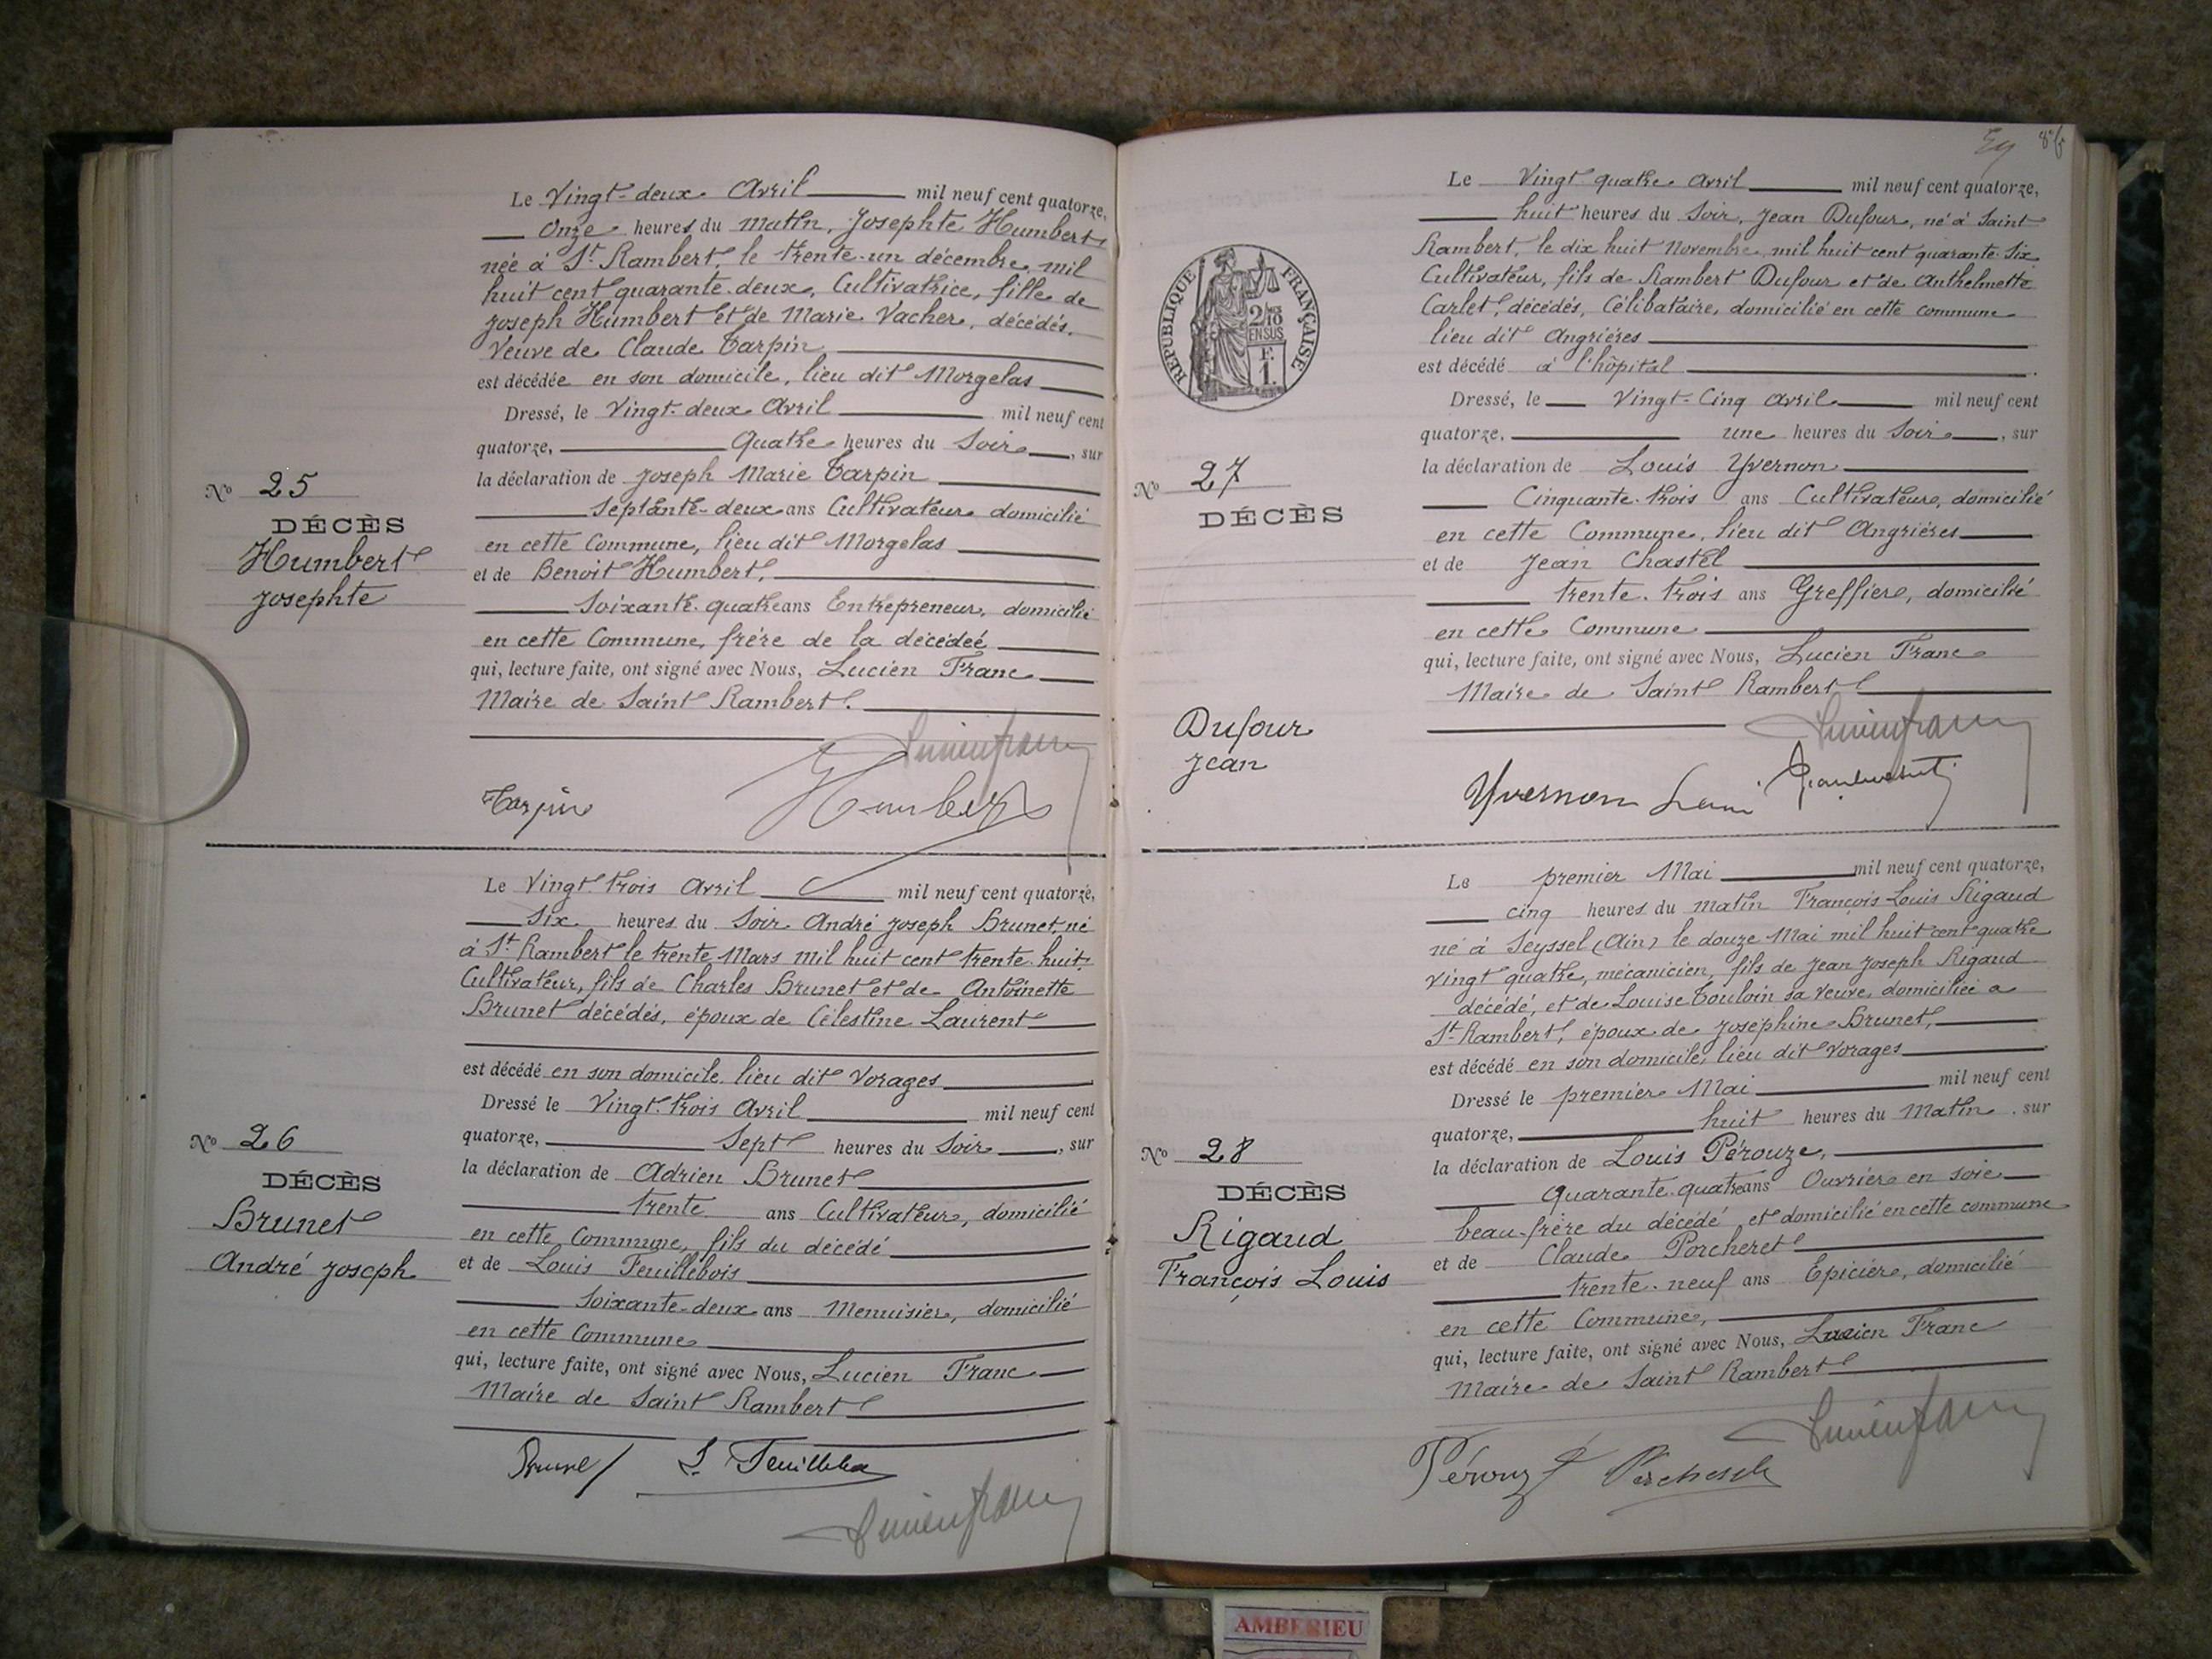 Le Vingt-deux Avril mil neuf cent quatorze,
Onze heures du matin, Josephte Humbert
née à St Rambert, le trente-un décembre mil
huit cent quarante-deux, Cultivatrice, fille de
Joseph Humbert et de Marie Vacher, décédés.
Veuve de Claude Tarpin
est décédée en son domicile, lieu dit Morgelas
Dressé, le Vingt-deux Avril mil neuf cent
quatorze, Quatre heures du Soir, sur
la déclaration de Joseph Marie Tarpin
Septante-deux ans Cultivateur domicilié
en cette Commune, lieu dit Morgelas
et de Benoit Humbert,
Soixante-quatre ans Entrepreneur, domicilié
en cette Commune, frère de la décédeé
qui, lecture faite, ont signé avec Nous, Lucien Franc
Maire de Saint Rambert.
No 25
DÉCÈS
Humbert
Josephte
Tarpin Humbert
Le Vingt-trois Avril mil neuf cent quatorze,
Six heures du Soir André Joseph Brunet, né
à St Rambert le trente Mars mil huit cent trente-huit,
Cultivateur, fils de Charles Brunet et de Antoinette
Brunet décédés, époux de Célestine Laurent
est décédé en son domicile, lieu dit Vorages
Dressé le Vingt-trois Avril mil neuf cent
quatorze, Sept heures du Soir, sur
la déclaration de Adrien Brunet
trente ans Cultivateur, domicilié
en cette Commune, fils du décédé
et de Louis Feuillebois
Soixante-deux ans Menuisier, domicilié
en cette Commune
qui, lecture faite, ont signé avec Nous, Lucien Franc
Maire de Saint Rambert
No 26
DÉCÈS
Brunet
André Joseph
Brunet
86
Le Vingt-quatre Avril mil neuf cent quatorze,
huit heures du Soir, Jean Dufour, né à Saint
Rambert, le dix huit Novembre mil huit cent quarante-Six
Cultivateur, fils de Rambert Dufour et de Anthelmette
Carlet, décédés, Célibataire, domicilié en cette commune
lieu dit Angrières
est décédé à l'hôpital
Dressé, le Vingt-Cinq Avril mil neuf cent
quatorze, une heures du Soir, sur
la déclaration de Louis Yvernon
Cinquante-trois ans Cultivateur, domicilié
en cette Commune, lieu dit Angrières
et de Jean Chastel
trente-trois ans Greffier, domicilié
en cette Commune
qui, lecture faite, ont signé avec Nous, Lucien Franc
Maire de Saint Rambert
REPUBLIQUE FRANÇAISE
2/10
EN SUS
F.
1.
No 27
DÉCÈS
Dufour
Jean
Yvernon Louis
Le premier Mai mil neuf cent quatorze,
cinq heures du matin François Louis Rigaud
né à Seyssel (Ain) le douze Mai mil huit cent quatre
vingt quatre, mécanicien, fils de Jean Joseph Rigaud
décédé, et de Louise Touloin sa veuve, domiciliée a
St-Rambert, époux de Joséphine Brunet,
est décédé en son domicile, lieu dit Vorages
Dressé le premier Mai mil neuf cent
quatorze, huit heures du Matin, sur
la déclaration de Louis Pérouze,
Quarante-quatre ans Ouvrier en soie
beau-frère du décédé et domicilié en cette commune
et de Claude Porcheret
trente-neuf ans Epicier, domicilié
en cette Commune,
qui, lecture faite, ont signé avec Nous, Lucien Franc
Maire de Saint Rambert
No 28
DÉCÈS
Rigaud
François Louis
Pérouze
AMBERIEU